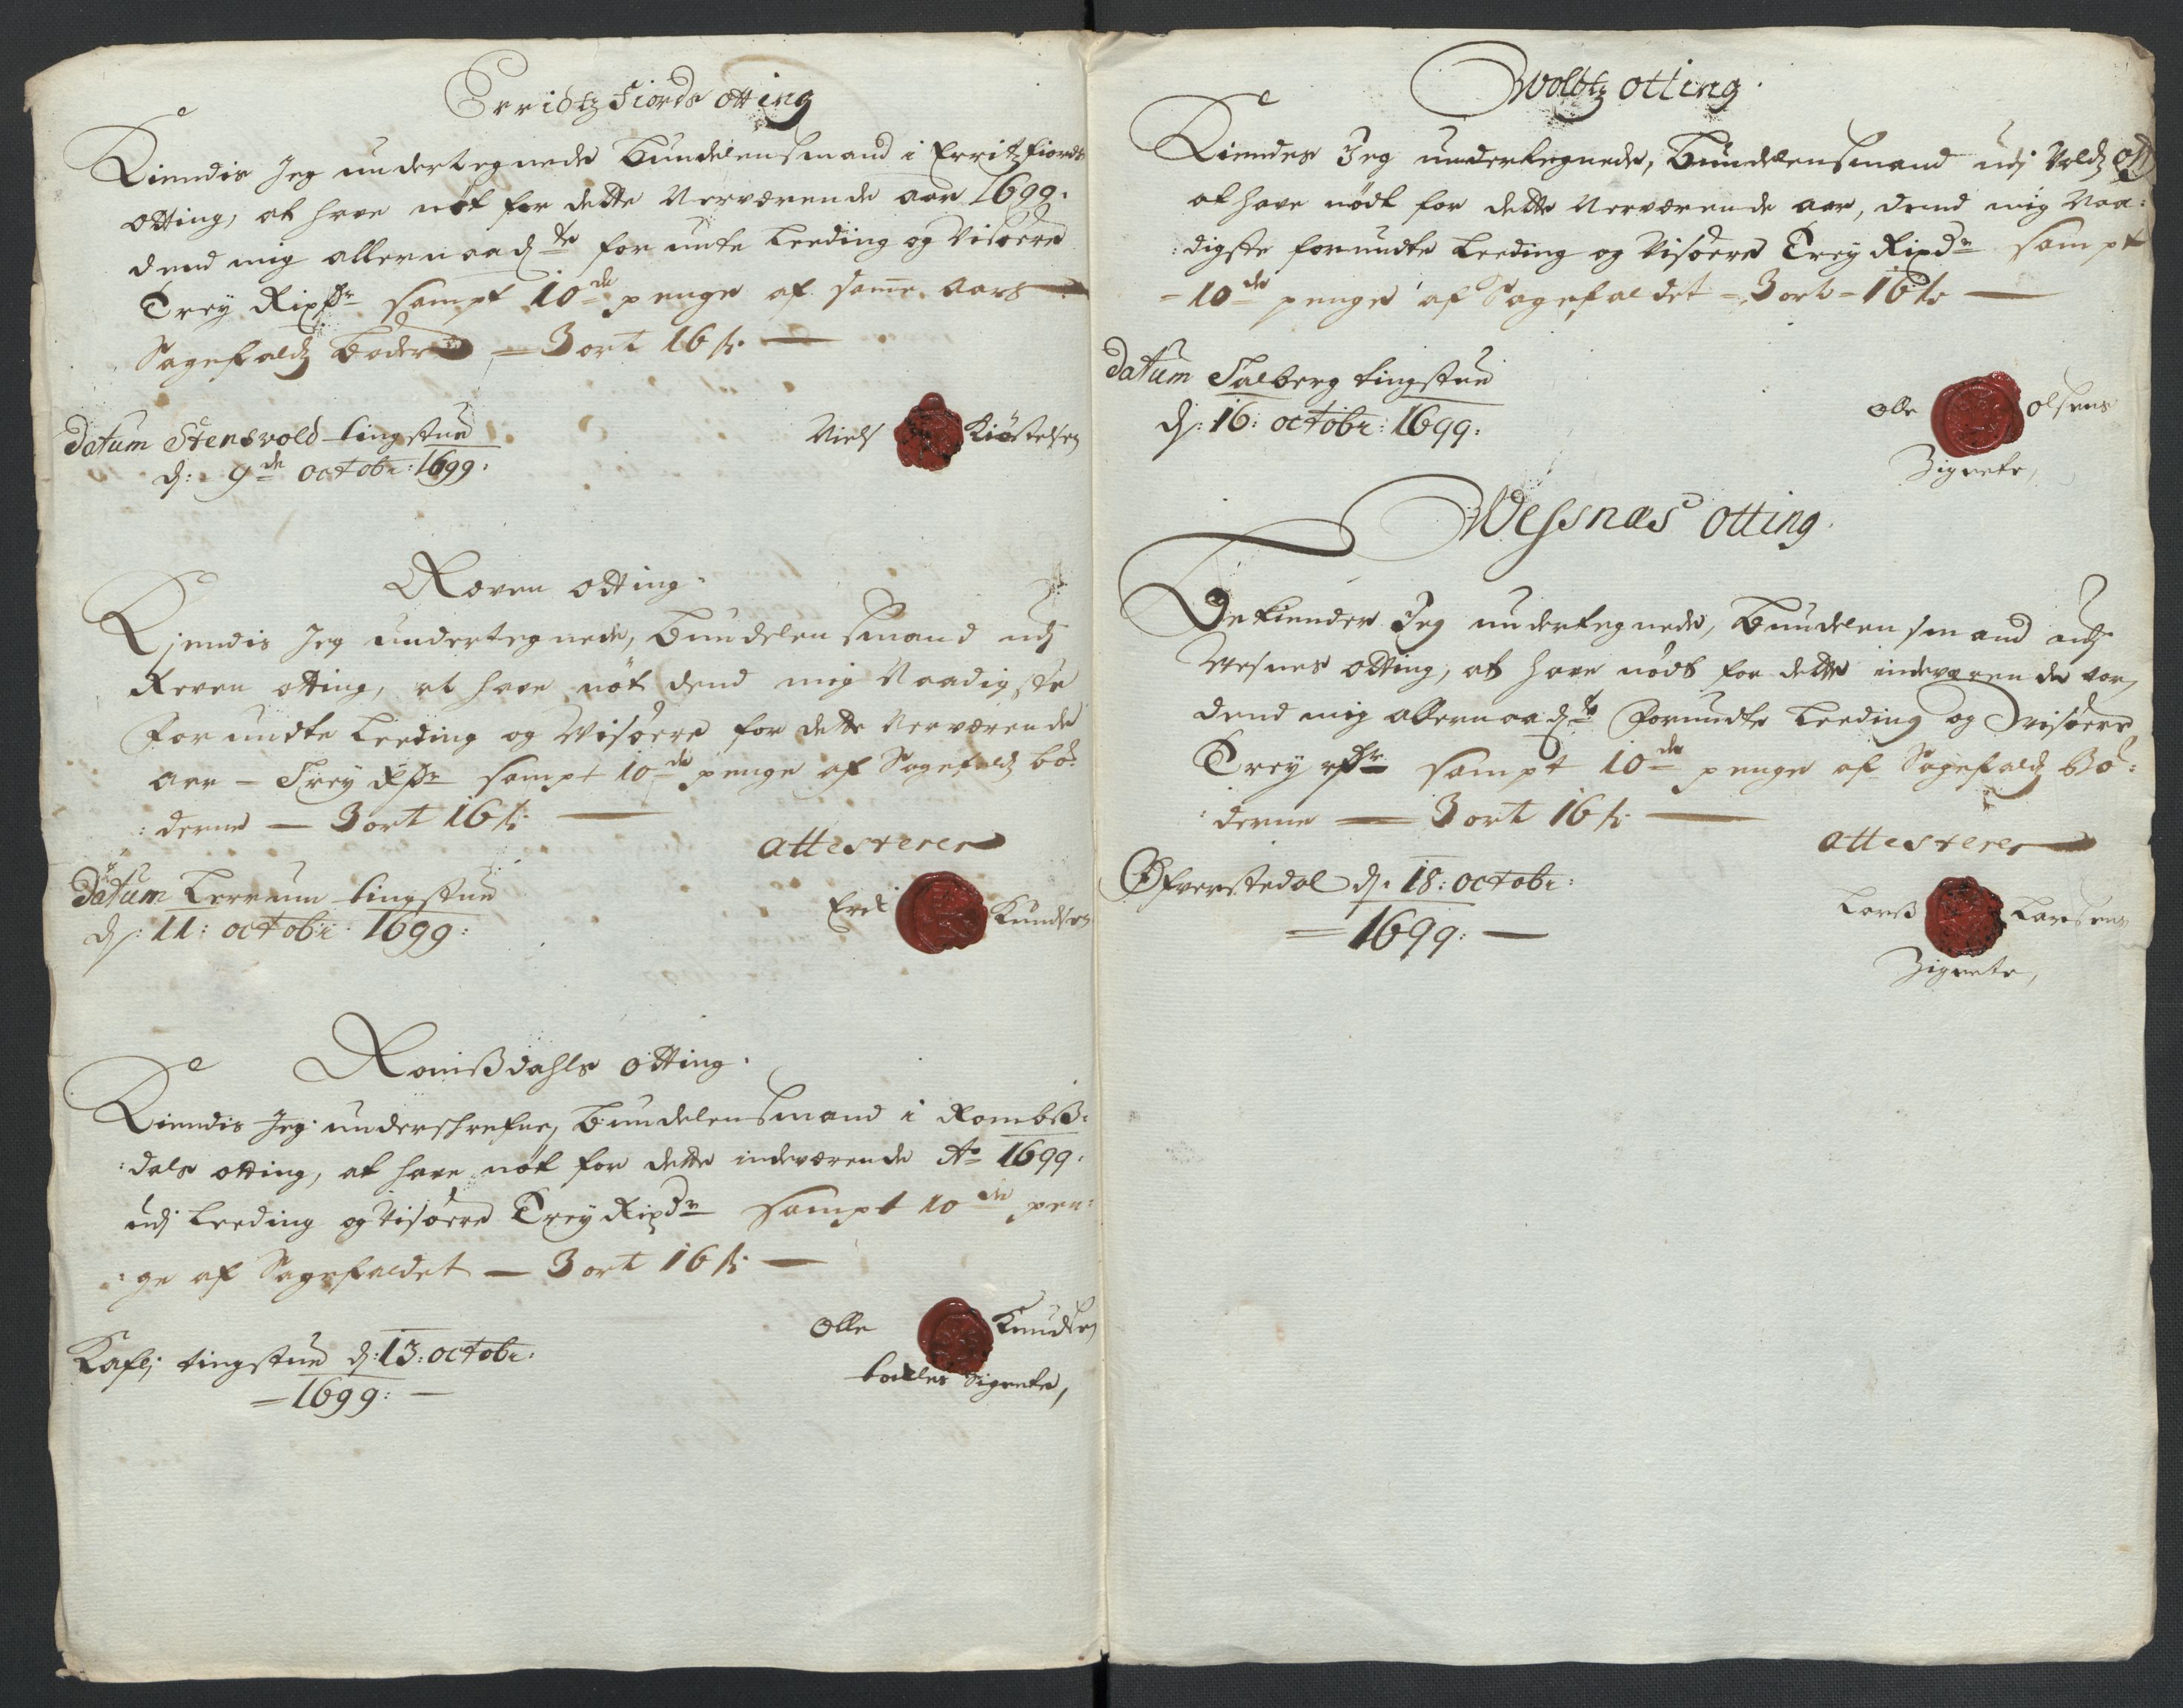 Erridtz Fiords otting
Kiendis Jeg undertegnede Bundelensmand i Erritzfiords
otting, at have nøt for dette Nerværende aar 1699.
dend mig allernaad.ste forunte Leeding og Visøere
Trey Rixdr sampt 10de penge af samme aars
Sagefaldz Bøder — 3 ort 16 s. —
Datum Stensvold tingstue
d: 9de octobr: 1699.
Niels Kiøstelsen
Røven otting.
Kiendis Jeg undertegnede, Bundelensmand udj
Reven otting, at have nøt dend mig Naadigste
forundte Leeding og Visøere for dette Nerværende
aar — Trey Rdr sampt 10de penge af Sagefaldz bø:
:derne — 3 ort 16 s. —
attesterer
Datum Leerum tingstue
d: 11: octobr 1699:
Erik Knudsen
Romißdahls otting.
Kiendis Jeg underschrefne, Bundelensmand i Rombß:
:dals otting, at have nøt for dette indeværende Ao 1699.
udj Leeding og Visøere Trey Rixdr sampt 10de pen:
:ge af Sagefaldet — 3 ort 16 s. —
Kafli tingstue d: 13: octobr:
— 1699: —
Olle Knudsen
Signete,
Wolbtz otting.
Kiendes Jeg undertegnede, Bundelensmand udj Voldz ott
at have nødt for dette Nerværende aar, dend mig Naa:
:digste forundte Leeding og Visøere Trey Rixdr sampt
— 10de penge af Sagefaldet — 3 ort — 16 s —
Datum Salberg tingstue
d: 16: octobr: 1699:
Olle Olsens
Zignete,
Wessnæs otting.
Bekiender Jeg undertegnede, Bundelensmand udj
Wesnes otting, at have nødt for dette indeværende aar,
dend mig allernaad.ste forundte Leeding og Visøere
Trey rdr sampt 10de penge af Sagefaldz Bø:
:derne — 3 ort 16 s. —
attesterer
Øfverstedal d. 18: octobr:
— 1699: —
Larß Larsens
Zignete,